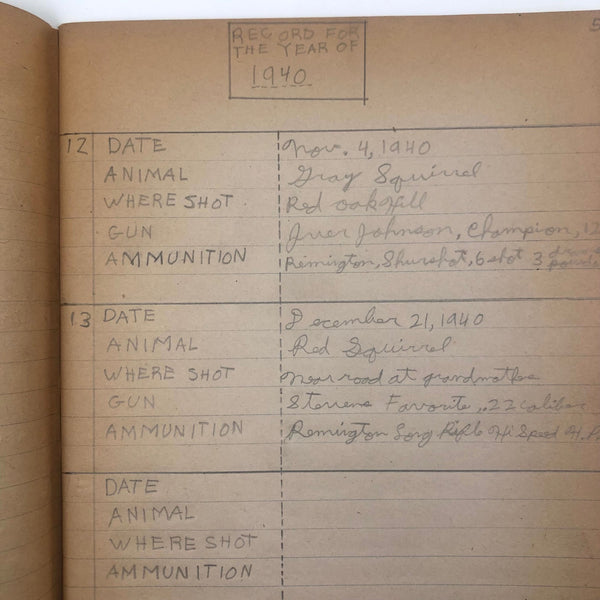 5
RECORD FOR
THE YEAR OF
1940
12 DATE Nov. 4, 1940
ANIMAL Gray Squirrel
WHERE SHOT Red oak Hill
GUN Iver Johnson, Champion, 12
AMMUNITION Remington, Shurshot, 6 shot 3
13 DATE December 21, 1940
ANIMAL Red Squirrel
WHERE SHOT Near road at
GUN Stevens Favorite, .22 caliber
AMMUNITION Remington Long Rifle Hi Speed H.
DATE
ANIMAL
WHERE SHOT
AMMUNITION